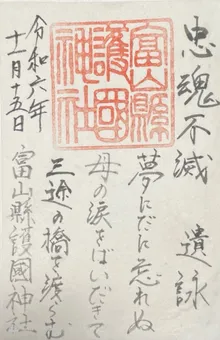 忠魂不滅
遺詠
夢にだに忘れぬ
母の涙をばいだきて
三途の橋を渡らむ
富山縣護國神社
令和六年
十一月十五日
富山縣
護國
神社